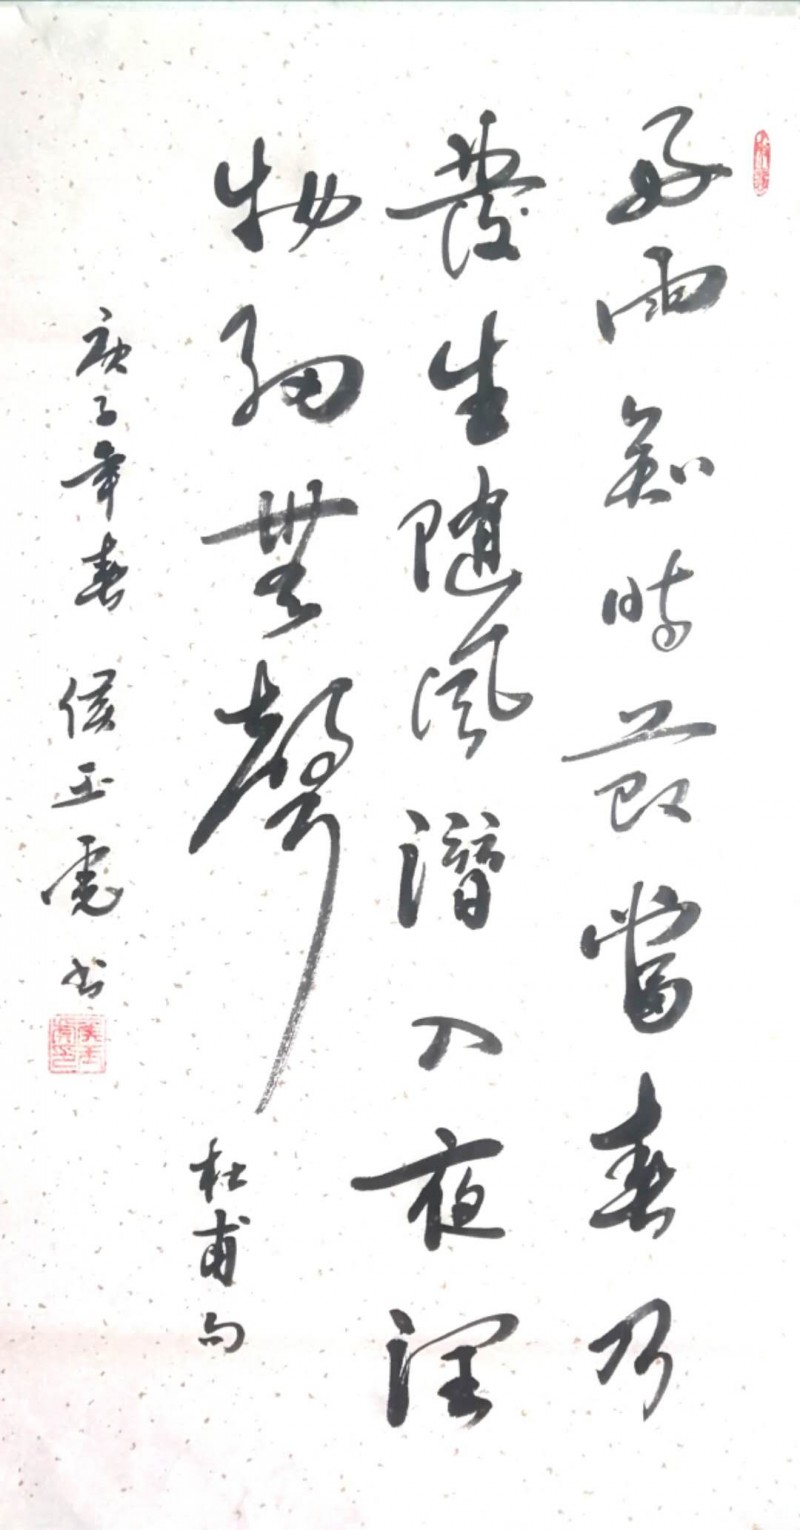 好雨知時節當春乃
發生随風潛入夜潤
物細無聲
杜甫句
庚子年春 侯玉虎书